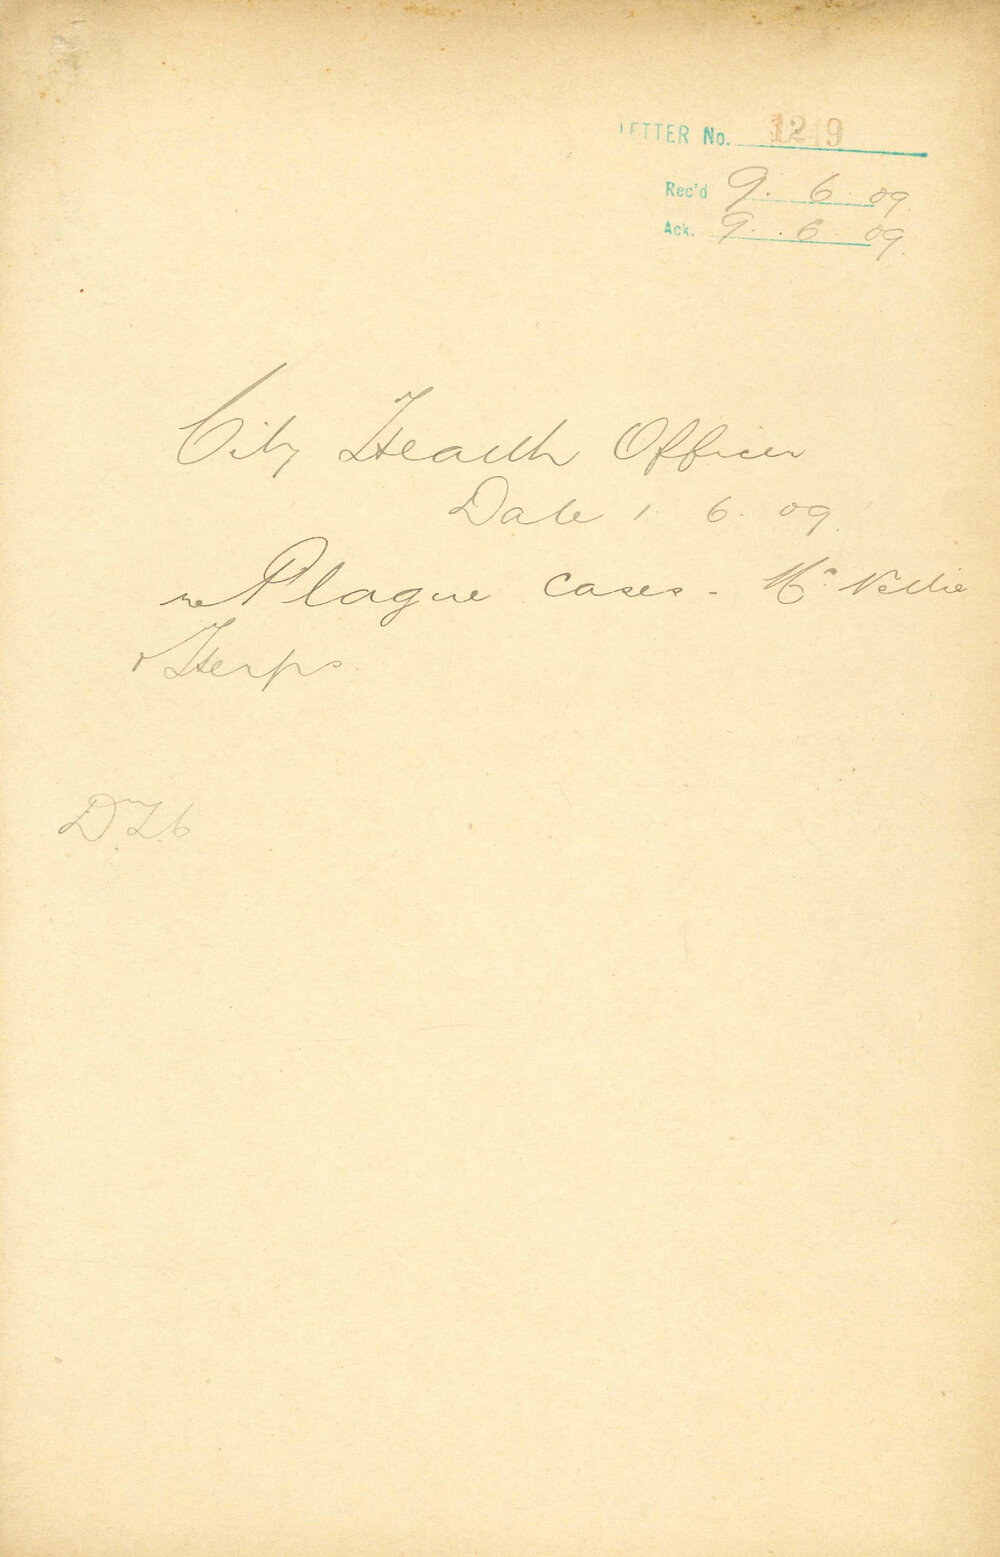 LETTER No. 1249
Rec'd 9. 6. 09
Ack. 9. 6. 09.
City Health Officer
Date 1. 6. 09.
re Plague cases - Mc
& Herps.